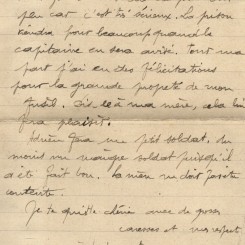 peu car c'est très sérieux. La prison
viendra pour beaucoup quand le
capitaine en sera avisé. Pour ma
part j'ai eu des félicitations
pour la grande propreté de mon
fusil. Dis le à ma mère, cela lui
fera plaisir.
un petit soldat, du
moins un maigre soldat puisqu'il
a été fait bon. La mère ne doit pas être
contente.
Je te quitte chérie avec de grosses
caresses et mes respects